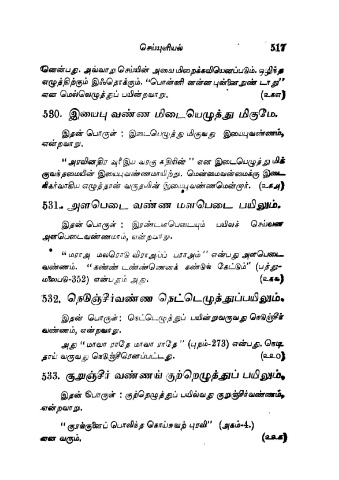 செய்யுளியல் 517
னென்பது. அவ்வாறு செய்யின் அவை மிறைக்கவியெனப்படும். ஒழிந்த
எழுத்திற்கும் இஃதொக்கும். “பொன்னி னன்ன புன்னேறுண் டாது”
என மெல்லெழுத்துப் பயின்றவாறு.
530. இயைபு வண்ண மிடையெழுத்து மிகுமே.
இதன் பொருள் : இடையெழுத்து மிகுவது இயைபுவண்ணம்,
என்றவாறு.
வரகு கதிரின்” என இடையெழுத்து மிக்
குவந்தமையின் இயைபுவண்ணமாயிற்று. மென்மைவன்மைக்கு இடை
நிகர்வாகிய எழுத்தான் வருதலின் இயைபுவண்ணமென்றார்.
531. அளபெடை வண்ண மளபெடை பயிலும்.
இதன் பொருள் : இரண்டளபெடையும் பயிலச் செய்வன
அளபெடைவண்ணமாம், என்றவாறு.
“மராஅ மலரொடு விராஅப்ப் பராஅம்” என்பது அளபெடை
வண்ணம். “கண்ண் டண்ண்ணெனக் கண்டுங் கேட்டும்” (பத்து-
மலைபடு-352) என்பதும் அது.
532. நெடுஞ்சீர்வண்ண நெட்டெழுத்துப்பயிலும்.
இதன் பொருள்: நெட்டெழுத்துப் பயின்றுவருவது நெடுஞ்சீர்
வண்ணம், என்றவாறு.
அது “மாவா ராதே மாவா ராதே” (புறம்-273) என்பது. நெடி
தாய் வருவது நெடுஞ்சீரெனப்பட்டது.
533. குறுஞ்சீர் வண்ணங் குற்றெழுத்துப் பயிலும்.
இதன் பொருள் : குற்றெழுத்துப் பயில்வது குறுஞ்சீர்வண்ணம்,
என்றவாறு.
“குரங்குளைப் பொலிந்த கொய்சுவற் புரவி” (அகம்-4.)
என வரும்.